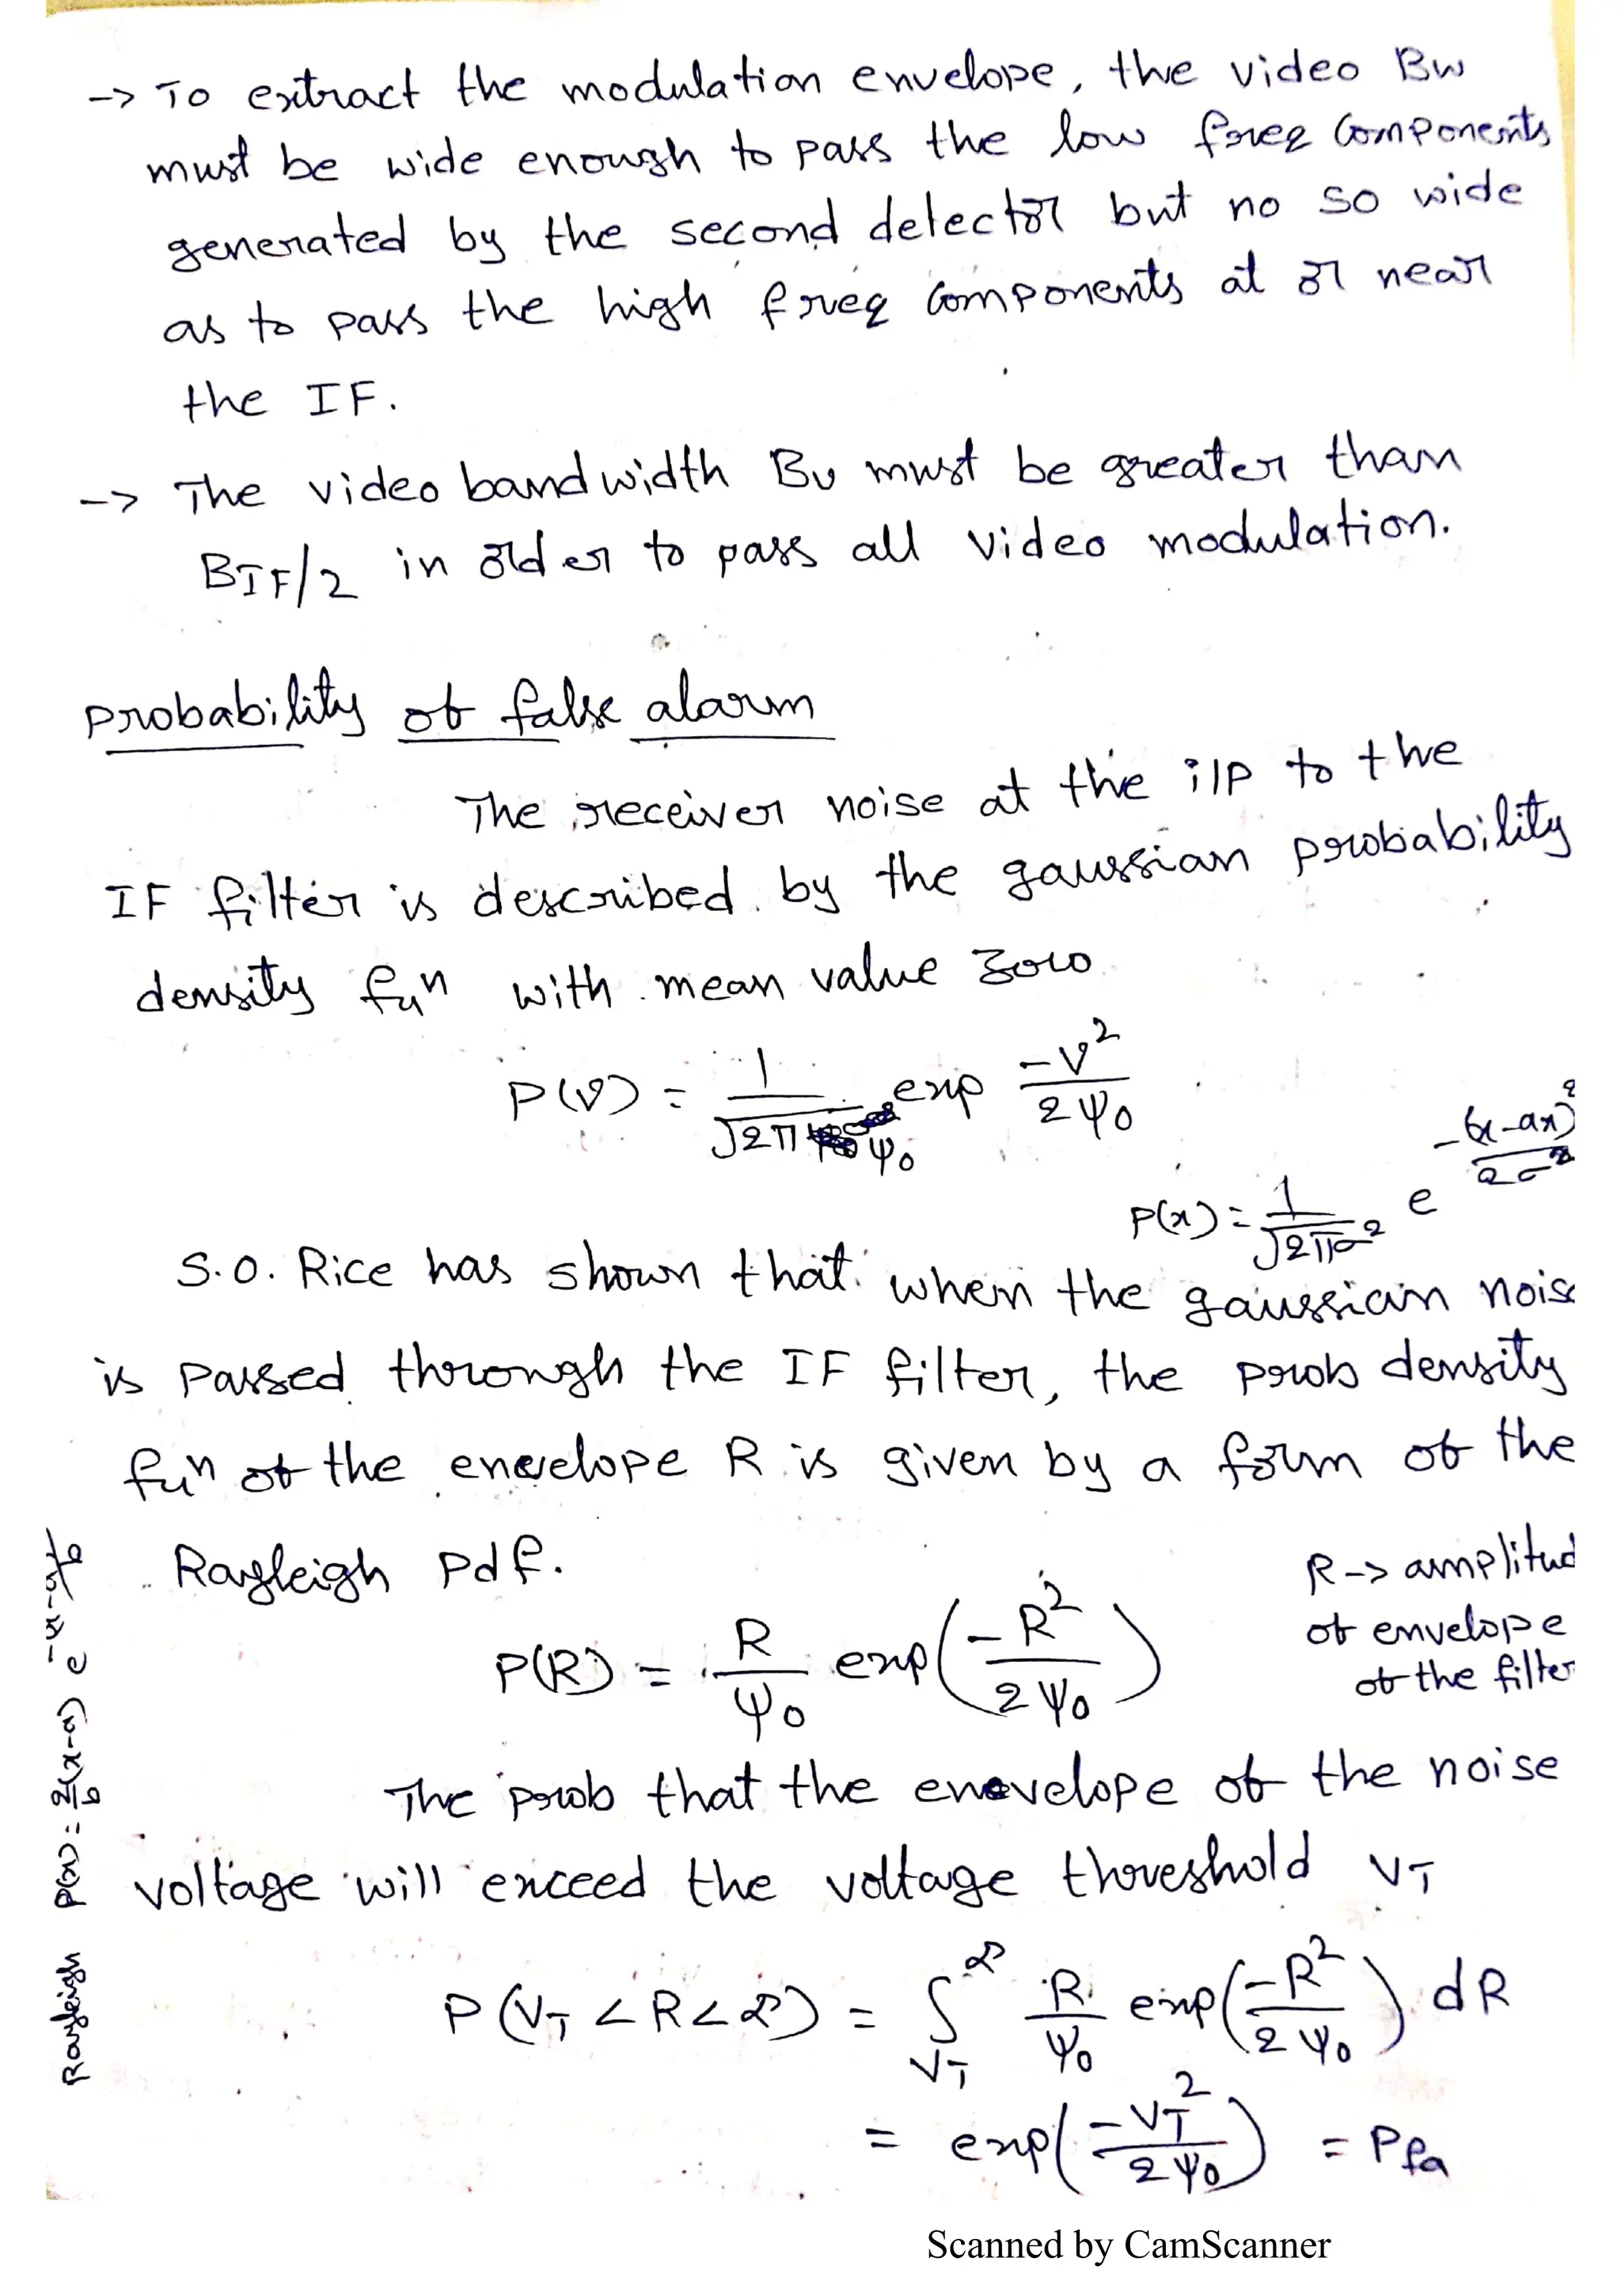 -> To extract the modulation envelope, the video BW
must be wide enough to pass the low freq components
generated by the second detector but no so wide
as to pass the high freq components at or near
the IF.
-> The video bandwidth Bv must be greater than
BIF/2 in order to pass all video modulation.
Probability of false alarm
The receiver noise at the i/p to the
IF filter is described by the gaussian probability
density fun with mean value zero
P(v) = 1/√2πψ₀ exp -v²/2ψ₀
P(x) = 1/√2πσ² e -(x-ax)²/2σ²
S.O. Rice has shown that when the gaussian nois
is passed through the IF filter, the prob density
fun of the envelope R is given by a form of the
Rayleigh Pdf.
R -> amplitud
of envelope
of the filter
P(R) = R/ψ₀ exp(-R²/2ψ₀)
The prob that the envelope of the noise
voltage will exceed the voltage threshold VT
P(VT < R < ∞) = ∫VT ∞ R/ψ₀ exp(-R²/2ψ₀) dR
= exp(-VT²/2ψ₀) = Pfa
Rayleigh P(x) = 2/b (x-a) e -(x-a)²/b
Scanned by CamScanner